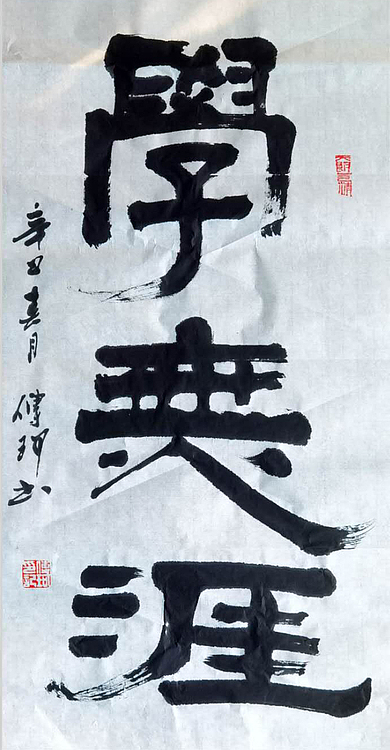 學無涯
辛丑春月 傅珂书